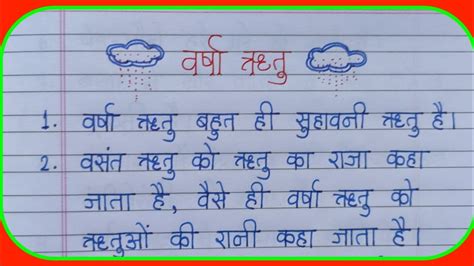 वर्षा ऋतु
1. वर्षा ऋतु बहुत ही सुहावनी ऋतु है।
2. वसंत ऋतु को ऋतु का राजा कहा
जाता है, वैसे ही वर्षा ऋतु को
ऋतुओं की रानी कहा जाता है।